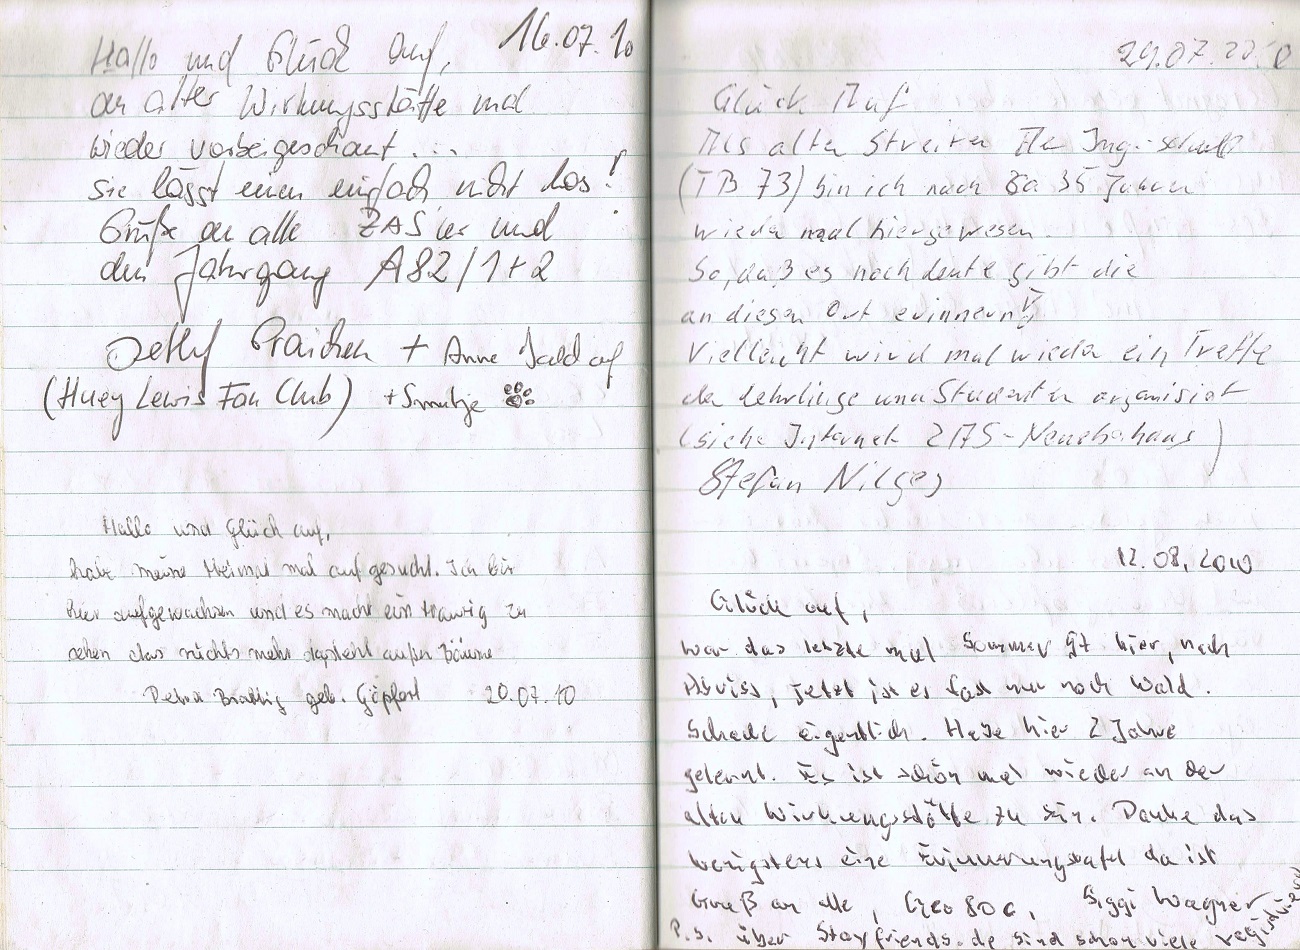 16.07.10
Hallo und Glück Auf,
an alter Wirkungsstätte mal
wieder vorbeigeschaut ...
Sie lässt einen einfach nicht los!
Grüße an alle ZASler und
den Jahrgang A82/1+2
Detlef + Anne
(Huey Lewis Fan Club) + Smutje
Hallo und Glück auf,
habe meine Heimat mal aufgesucht. Ich bin
hier aufgewachsen und es macht ein traurig zu
sehen das nichts mehr dasteht außer Bäume
Petra geb. Göpfert 20.07.10
29.07.2010
Glück Auf
Als alter Streiter der Ing.-schule
(TB 73) bin ich nach ca 35 Jahren
wieder mal hiergewesen.
So, daß es noch Leute gibt die
an diesen Ort erinnern
Vielleicht wird mal wieder ein Treffe
der Lehrlinge und Studenten organisiert
(siehe Internet ZAS- )
Stefan Nilges
12.08.2010
Glück auf,
war das letzte mal Sommer 97 hier, nach
Abriss, jetzt ist es fast nur noch Wald.
Schade eigentlich. Habe hier 2 Jahre
gelernt. Es ist schön mal wieder an der
alten Wirkungsstätte zu sein. Danke das
wenigstens eine Erinnerungstafel da ist
Gruß an alle, Geo 80 c, Siggi Wagner
P.S. über Stayfriends.de sind schon viele registriert